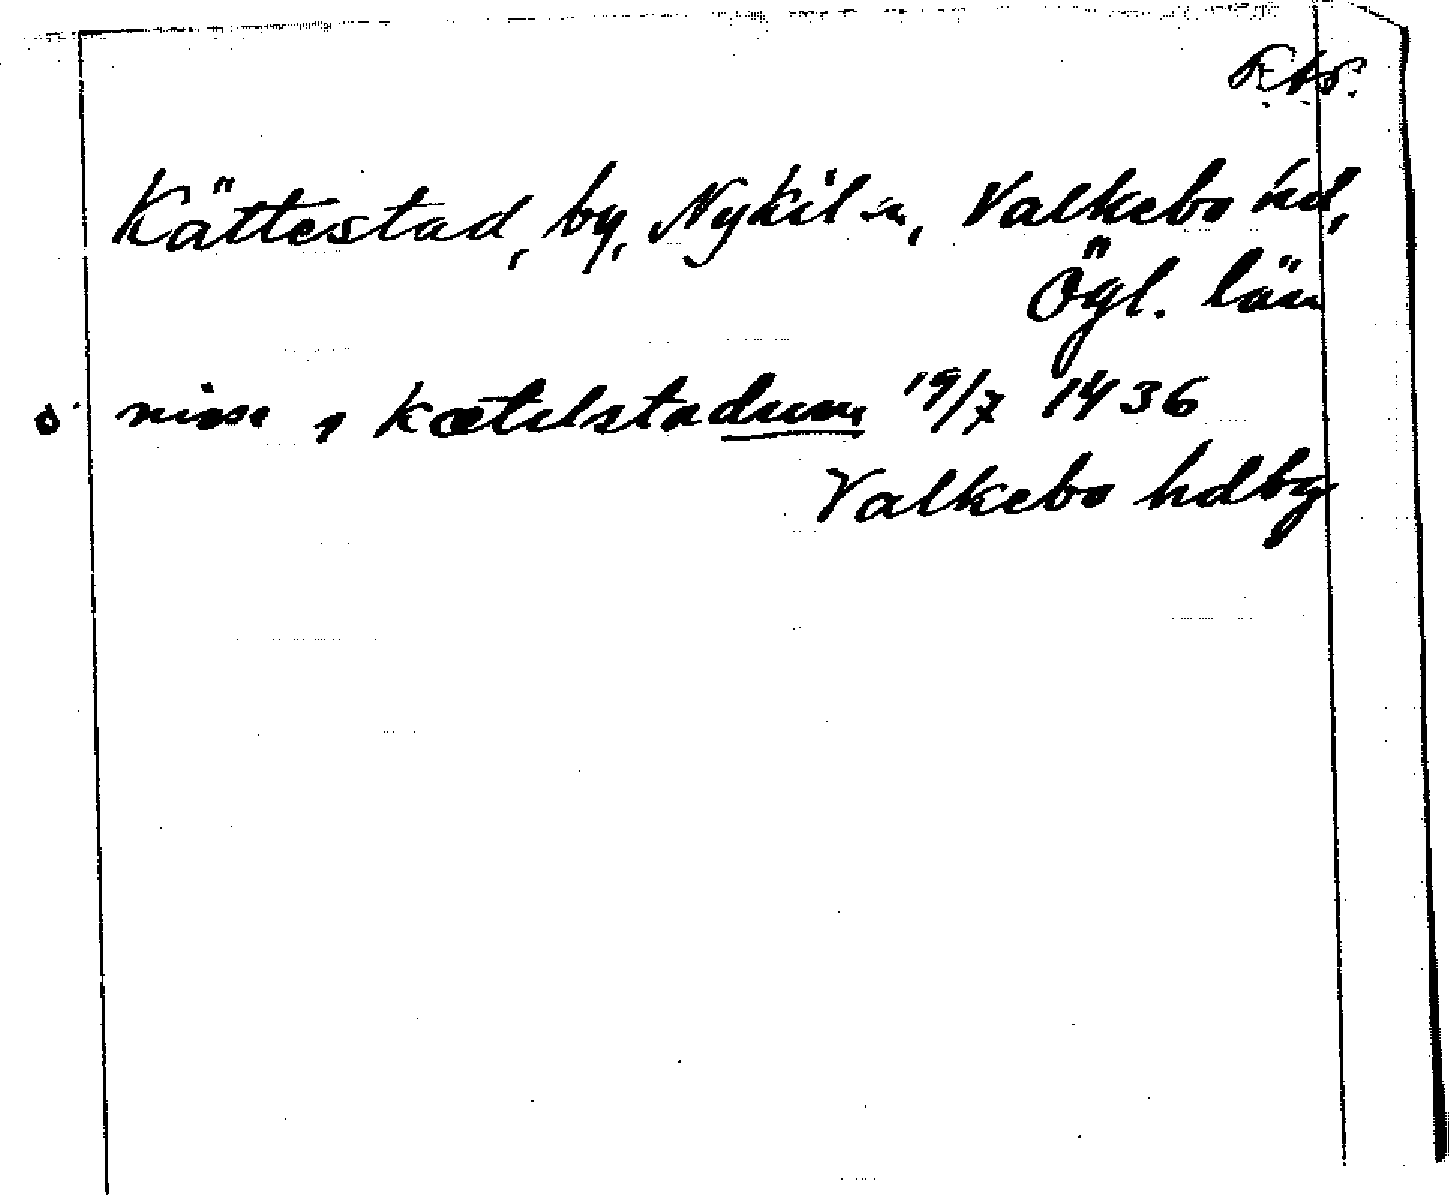 Kättestad, by, Nykil sn, Valkebo hd,
Ögl. län
nisse i Kætilstadum 19/7 1436
Valkebo hdby